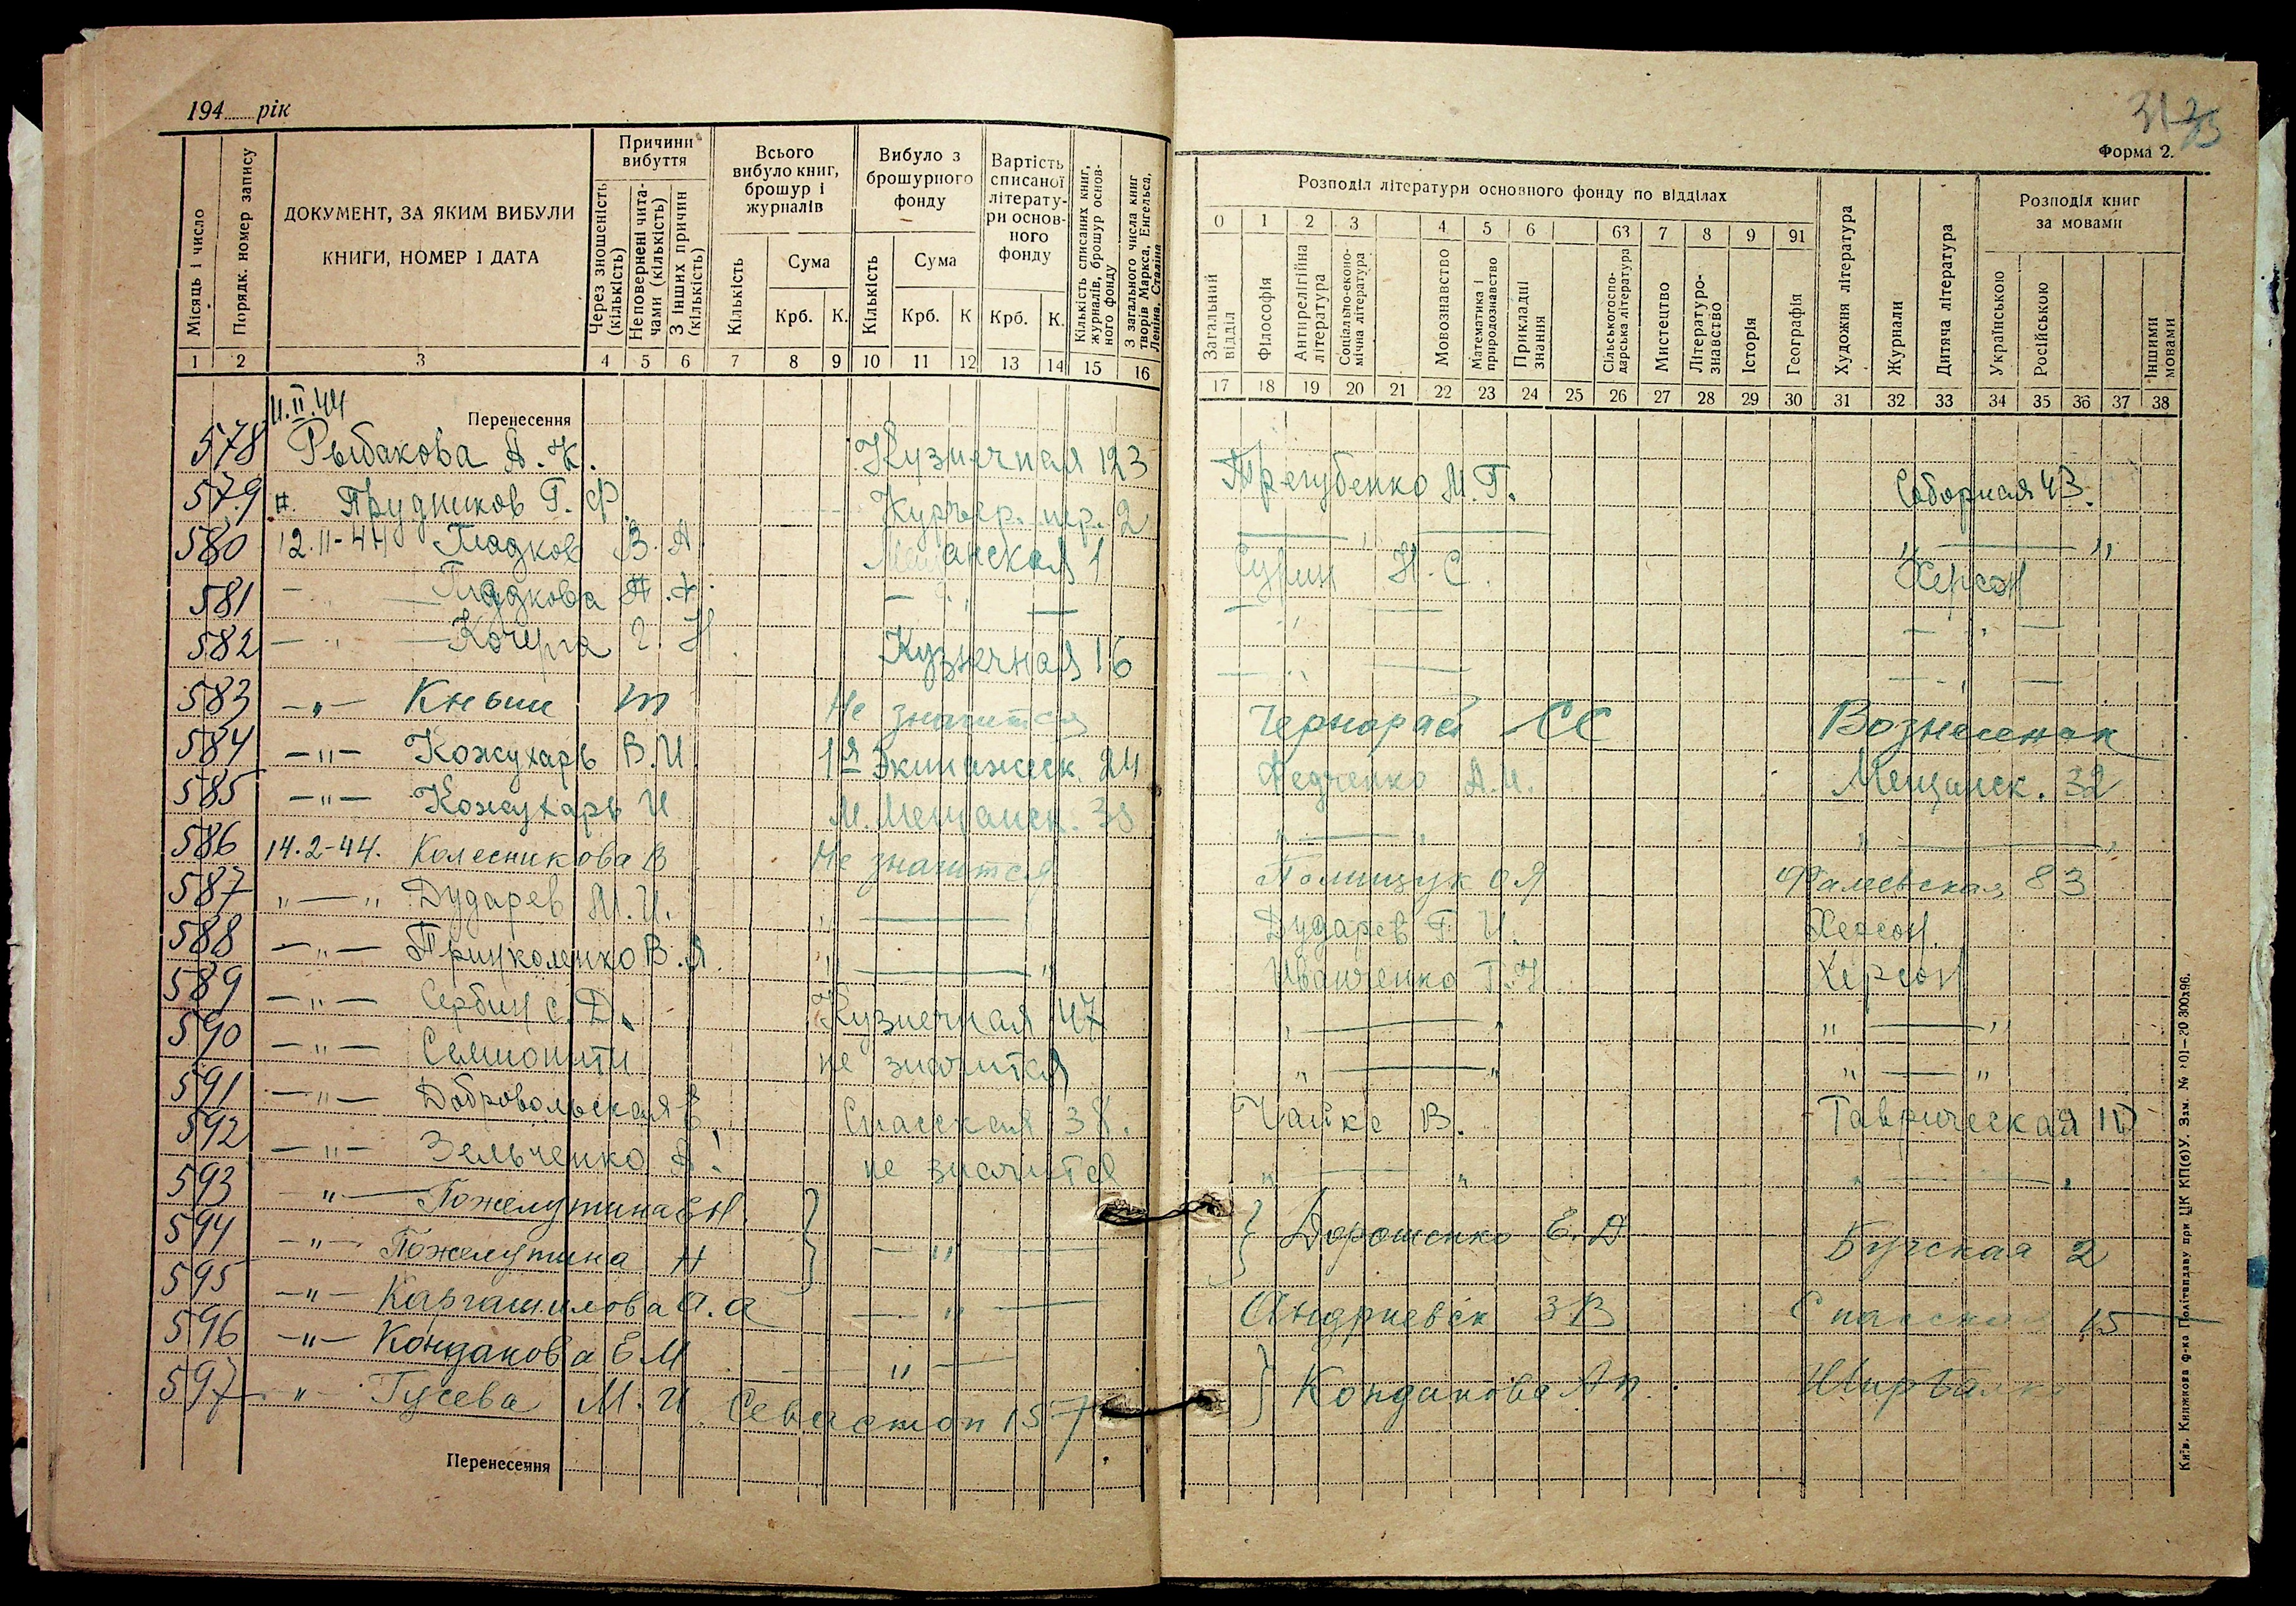 194...... рік
Причини вибуття
Всього вибуло книг, брошур і журналів
Вибуло з брошурного фонду
Вартість списаної літератури основного фонду
Місяць і число
Порядк. номер запису
ДОКУМЕНТ, ЗА ЯКИМ ВИБУЛИ
КНИГИ, НОМЕР І ДАТА
Через зношеність (кількість)
Неповернені читачами (кількість)
З інших причин (кількість)
Кількість
Сума
Крб.
К.
Кількість
Сума
Крб.
К
Крб.
К.
Кількість списаних книг, журналів, брошур основного фонду
З загального числа книг творів Маркса, Енгельса, Леніна, Сталіна
1 2 3 4 5 6 7 8 9 10 11 12 13 14 15 16
11.II.44
Перенесення
578 Рыбакова А. К. Кузнечная 123
579 Прудников Г. Ф. Курьер. пер. 2
580 12.II-44 Гладков В. А. Мещанская 1
581 — Гладкова А. — " —
582 — " — Кочерга Г. Н. Кузнечная 16
583 — " — Кныш Не значится
584 — " — Кожухарь В. И. 1я Экипажеск. 24
585 — " — Кожухарь И М. Мещанск. 38
586 14.2-44. Колесникова В Не значится
587 " — " Дударев М. И. " —
588 — " — В. Я. " — "
589 — " — Сербин С. Д. Кузнечная 47
590 — " — не значится
591 — " — Добровольская Е. Спасская 38.
592 — " — Зельченко А. не значится
593 — " — Пожелутина Е Н.
594 — " — Пожелутина Н — " —
595 — " — а. а — " —
596 — " — Кондакова Е М — " —
597 — " — Гусева М. И. Севастоп 157
Перенесення
31
Форма 2.
Розподіл літератури основного фонду по відділах
Розподіл книг за мовами
0 1 2 3 4 5 6 63 7 8 9 91
Загальний відділ
Філософія
Антирелігійна література
Соціально-економічна література
Мовознавство
Математика і природознавство
Прикладні знання
Сільськогоспо-дарська література
Мистецтво
Літературо-знавство
Історія
Географія
Художня література
Журнали
Дитяча література
Українською
Російською
Іншими мовами
17 18 19 20 21 22 23 24 25 26 27 28 29 30 31 32 33 34 35 36 37 38
Трегубенко М. Г. Соборная 43.
— " — " — "
Сурин Н. С. Херсон
— " — — " —
— " — — " —
СС Вознесенск
Федченко А. И. Мещанск. 32
" — " " — "
Полищук О Я Фалеевская 83
Дударев Г. И. Херсон.
Иванченко Г. Херсон
" — " " — "
" — " " — "
Чайка В. Таврическая
" — " " — "
Дорошенко Е. Д Бугская 2
Андриевск З В Спасская 15
Кондакова Ап.
Київ. Книжкова ф-ка Політвидаву при ЦК КП(б)У.